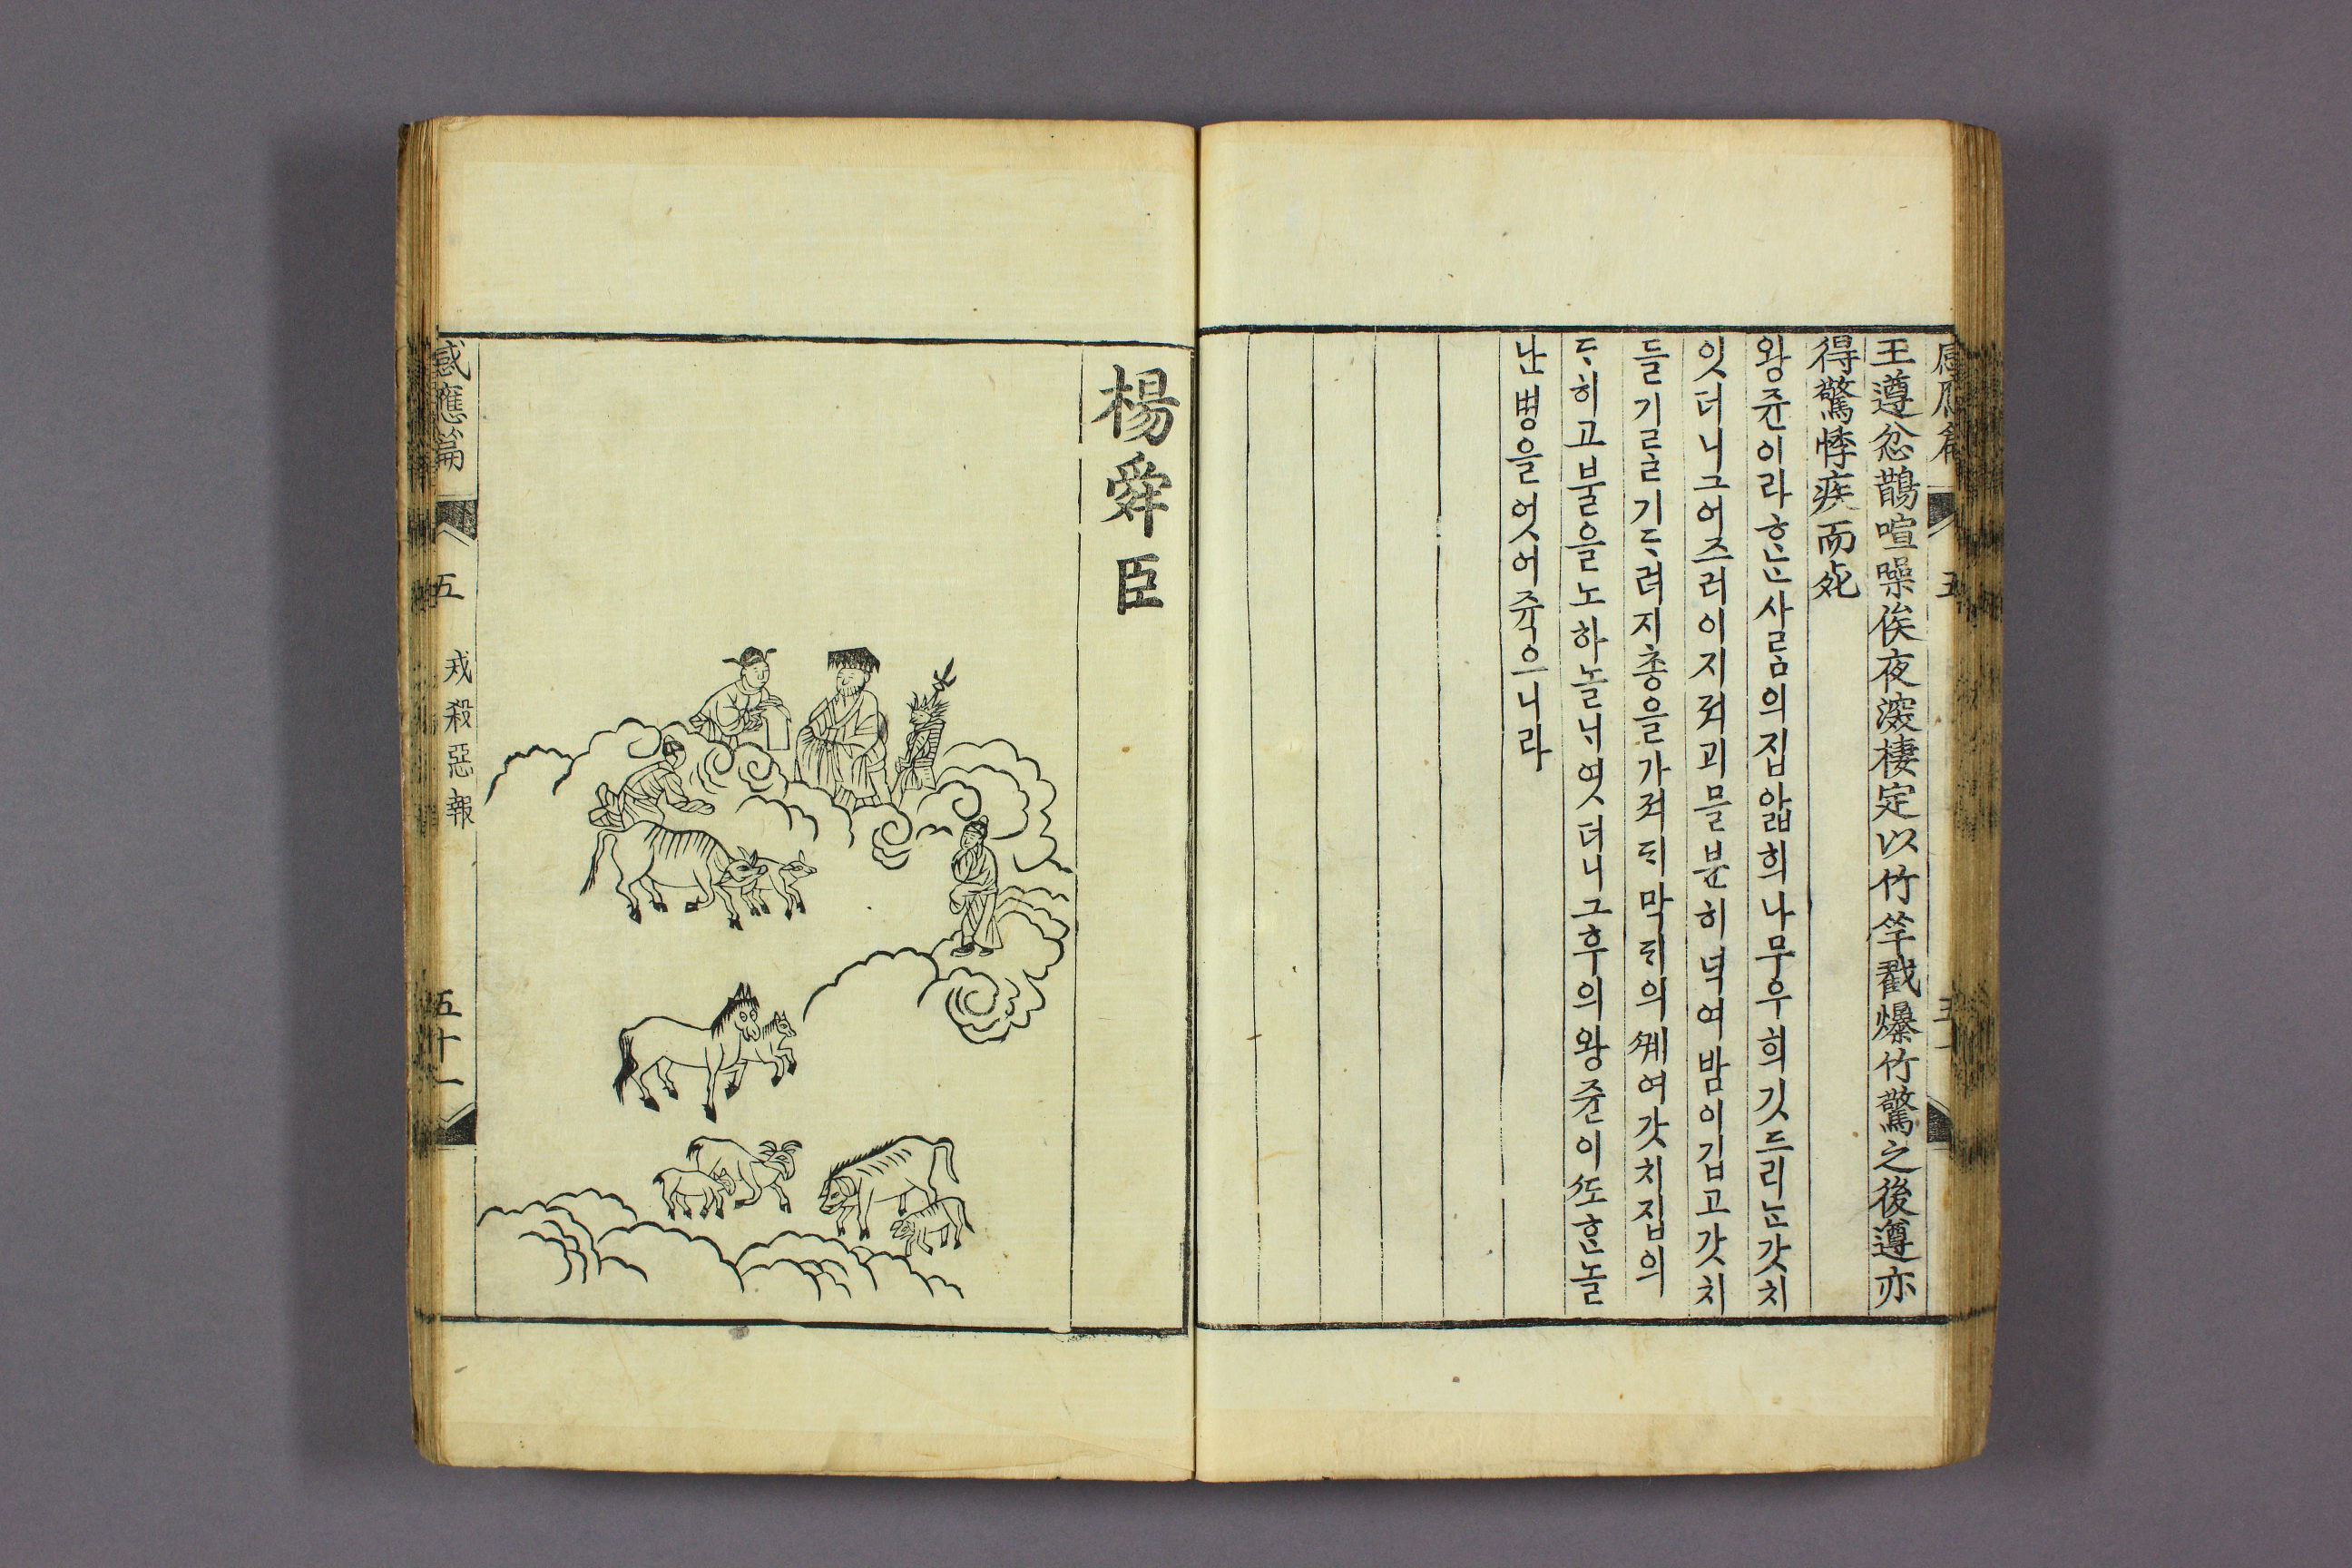 王遵忿鵲喧噪俟夜深棲定以竹竿戳爆竹驚之後遵亦
得驚悸疾而死
왕쥰이라ᄒᆞᆫ사ᄅᆞᆷ의집앏희나무우희깃드리ᄂᆞᆫ갓치
잇더니그어즈러이지져괴믈분히넉여밤이깁고갓치
들기ᄅᆞᆯ기ᄃᆞ려지총을가져ᄃᆡ막ᄃᆡ의ᄭᅦ여갓치집의
ᄃᆞ히고불을노하놀ᄂᆡ엿더니그후의왕쥰이ᄯᅩᄒᆞᆫ놀
난병을엇어쥭으니라
楊舜臣
感應篇 五 戒殺惡報 五十一